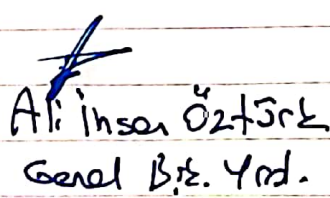 Ali İhsan Öztürk
Genel Bşk. Yrd.